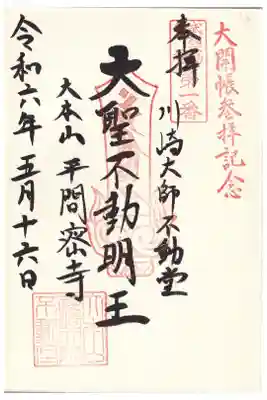 大開帳参拝記念
奉拝
第一番
川崎大師不動堂
大聖不動明王
大本山 平間密寺
令和六年五月十六日